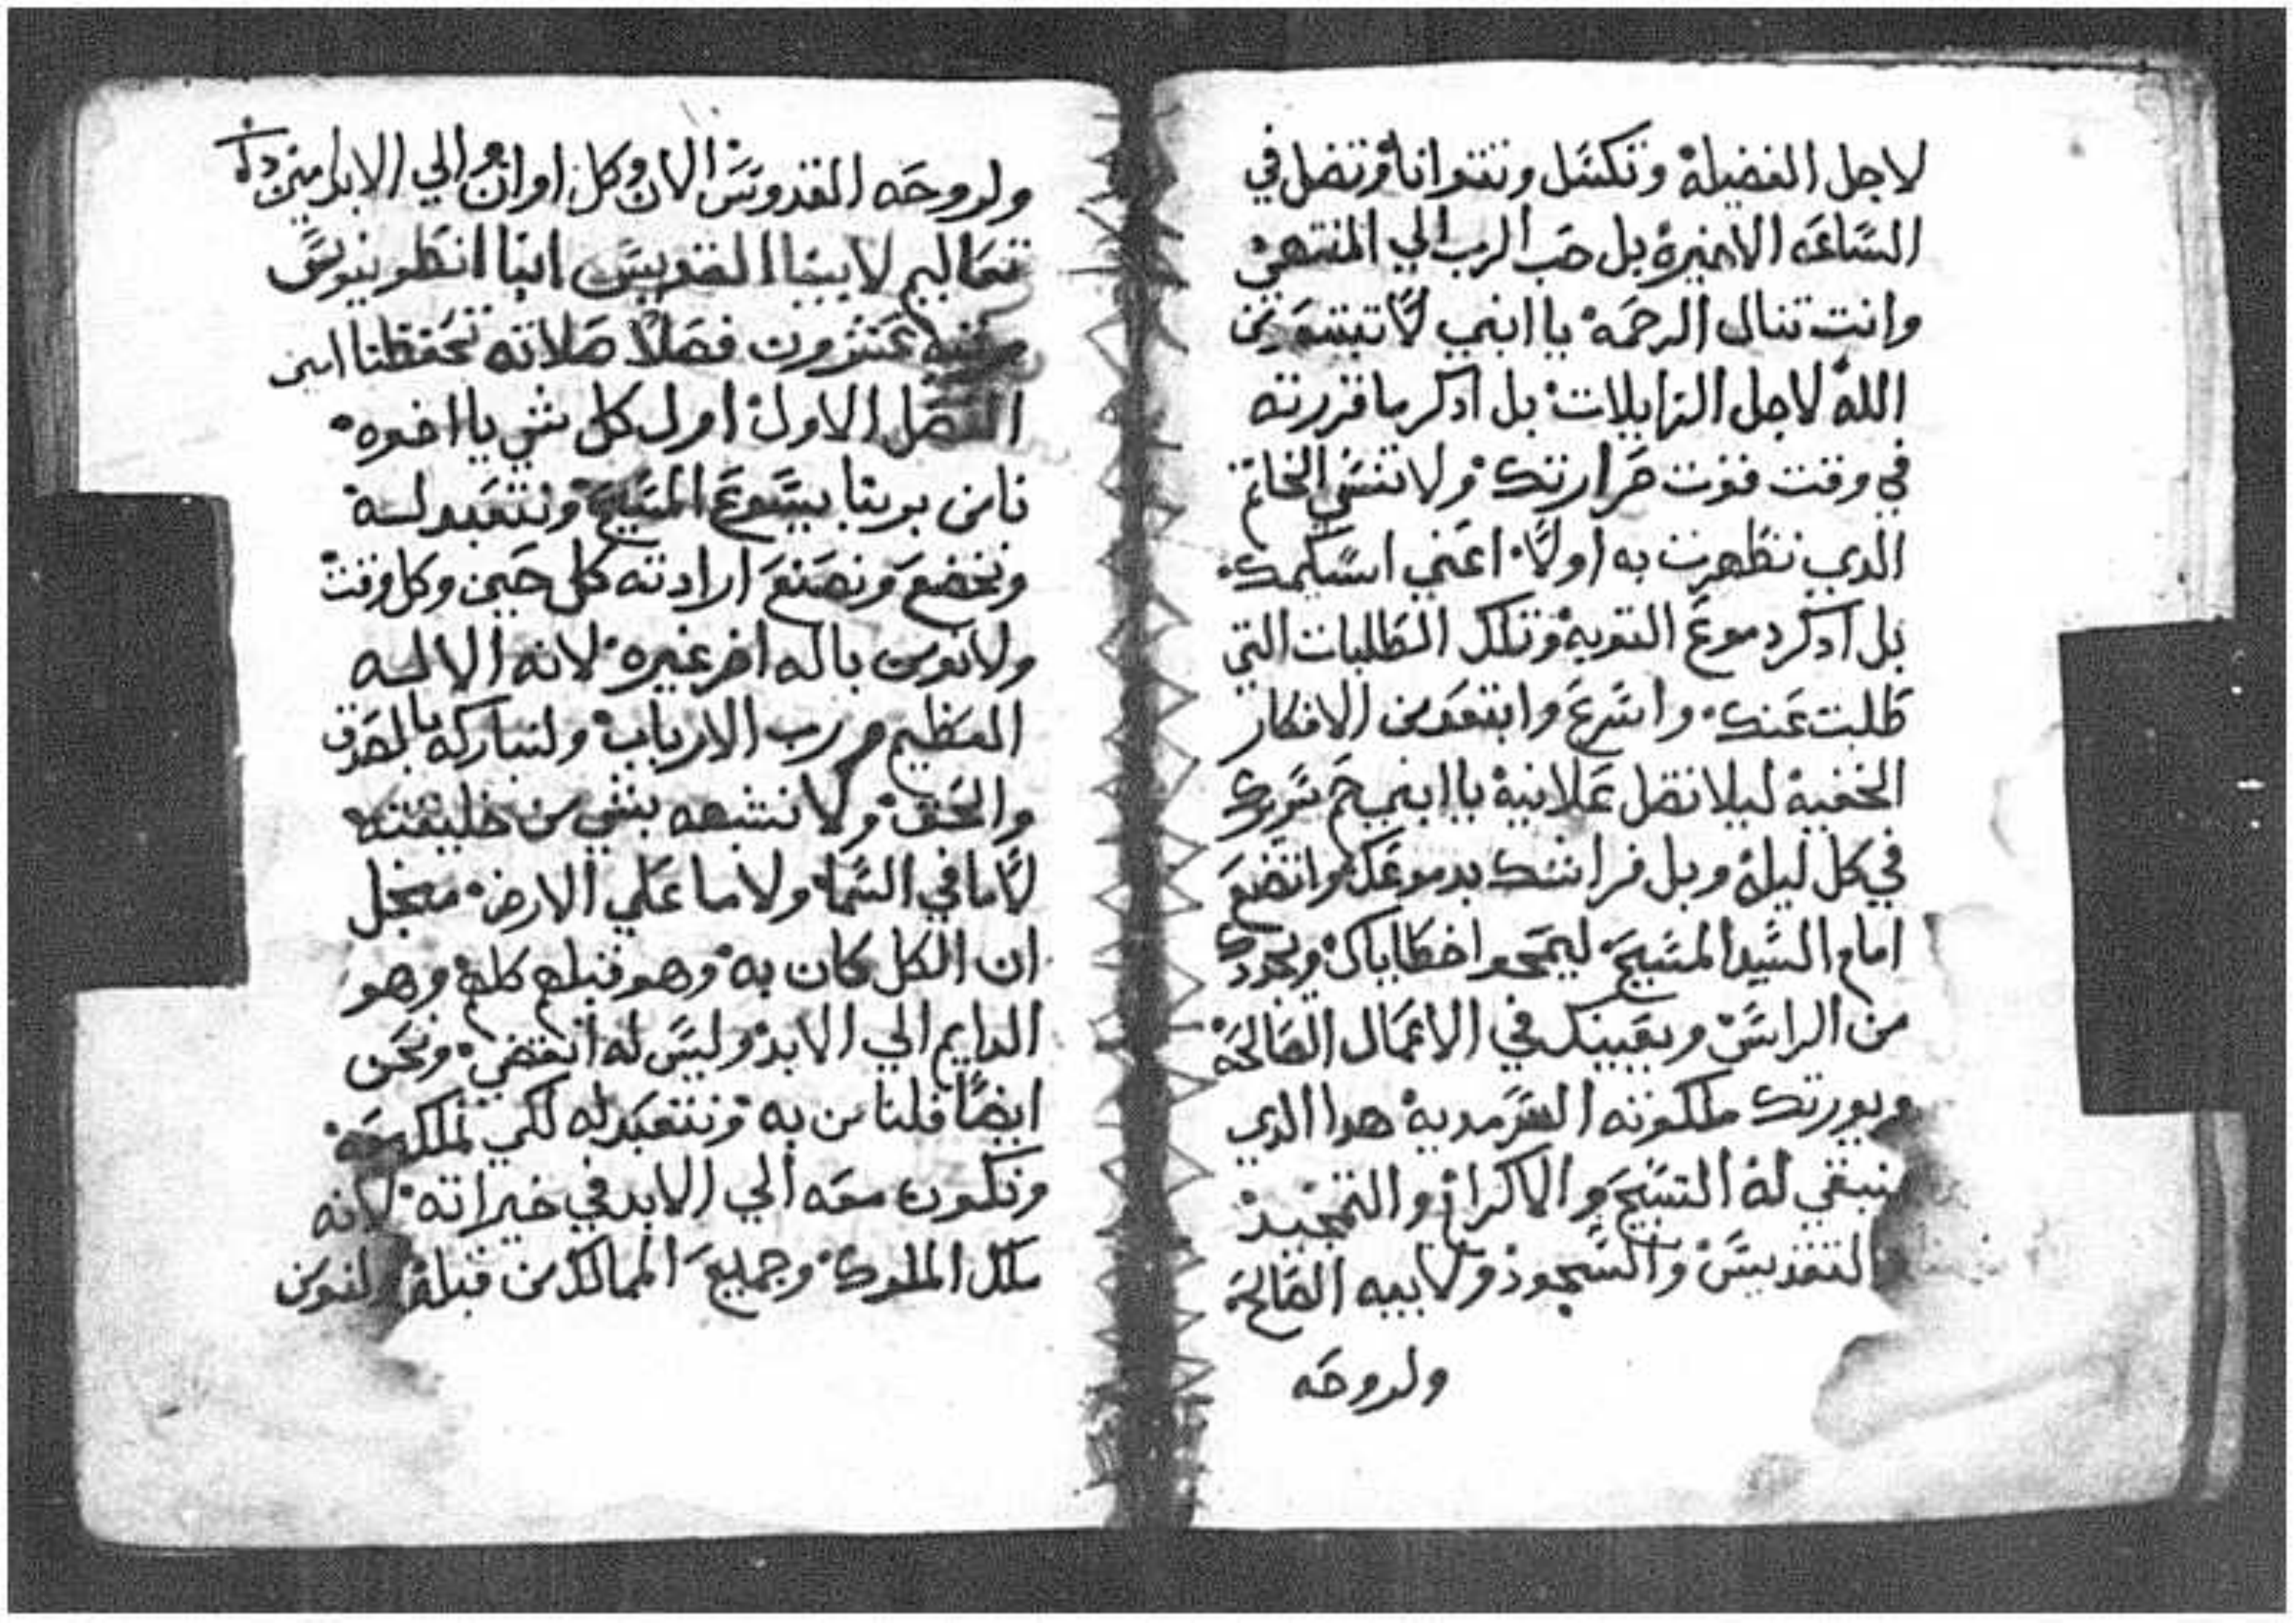 لاجل الفضيلة وتكسل وتتوانا وتضل في
الساعه الاخيرة بل حب الرب الي المنتهي
وانت تنال الرحمه يا ابني لا تبتعد من
الله لاجل الزايلات بل ادكر ما قررته
في وقت قوت حرارتك ولا تنسي الخاتم
الدي تطهرت به اولا اعني اسكيمك
بل ادكر دموع التوبة وتلك الطلبات التي
طلبت عنك واسرع وابتعد من الافكار
الخفية ليلا تضل علانية يا ابني حم سريرك
في كل ليلة وبل فراشك بدموعك واتضع
امام السيد المسيح ليمحوا خطاياك ويجددك
من الراس ويعينك في الاعمال الصالحه
ويورتك ملكوته السرمدية هدا الدي
ينبغي له التسبيح والاكرام والتمجيد
التقديس والسجود ولابيه الصالح
ولروحه
ولروحه القدوس الان وكل اوان والي الابد امين
تعاليم لابينا القديس انبا انطونيوس
عشرون فصلا صلاته تحفظنا امين
الفصل الاول اول كل شي يا اخوه
نامن بربنا يسوع المسيح ونتعبد له
ونخضع ونصنع ارادته كل حين وكل وقت
ولا نومن باله اخر غيره لانه الاله
العظيم رب الارباب ولنباركه بالصدق
والحق ولا نشبهه بشي من خليقته
لا ما في السما ولا ما علي الارض من اجل
ان الكل كان به وهو قبلهم كلهم وهو
الدايم الي الابد وليس له انقضي ونحن
ايضا فلنامن به ونتعبد له لكي نملك معه
ونكون معه الي الابد في خيراته لانه
ملك الملوك وجميع الممالك من قبله ولنومن